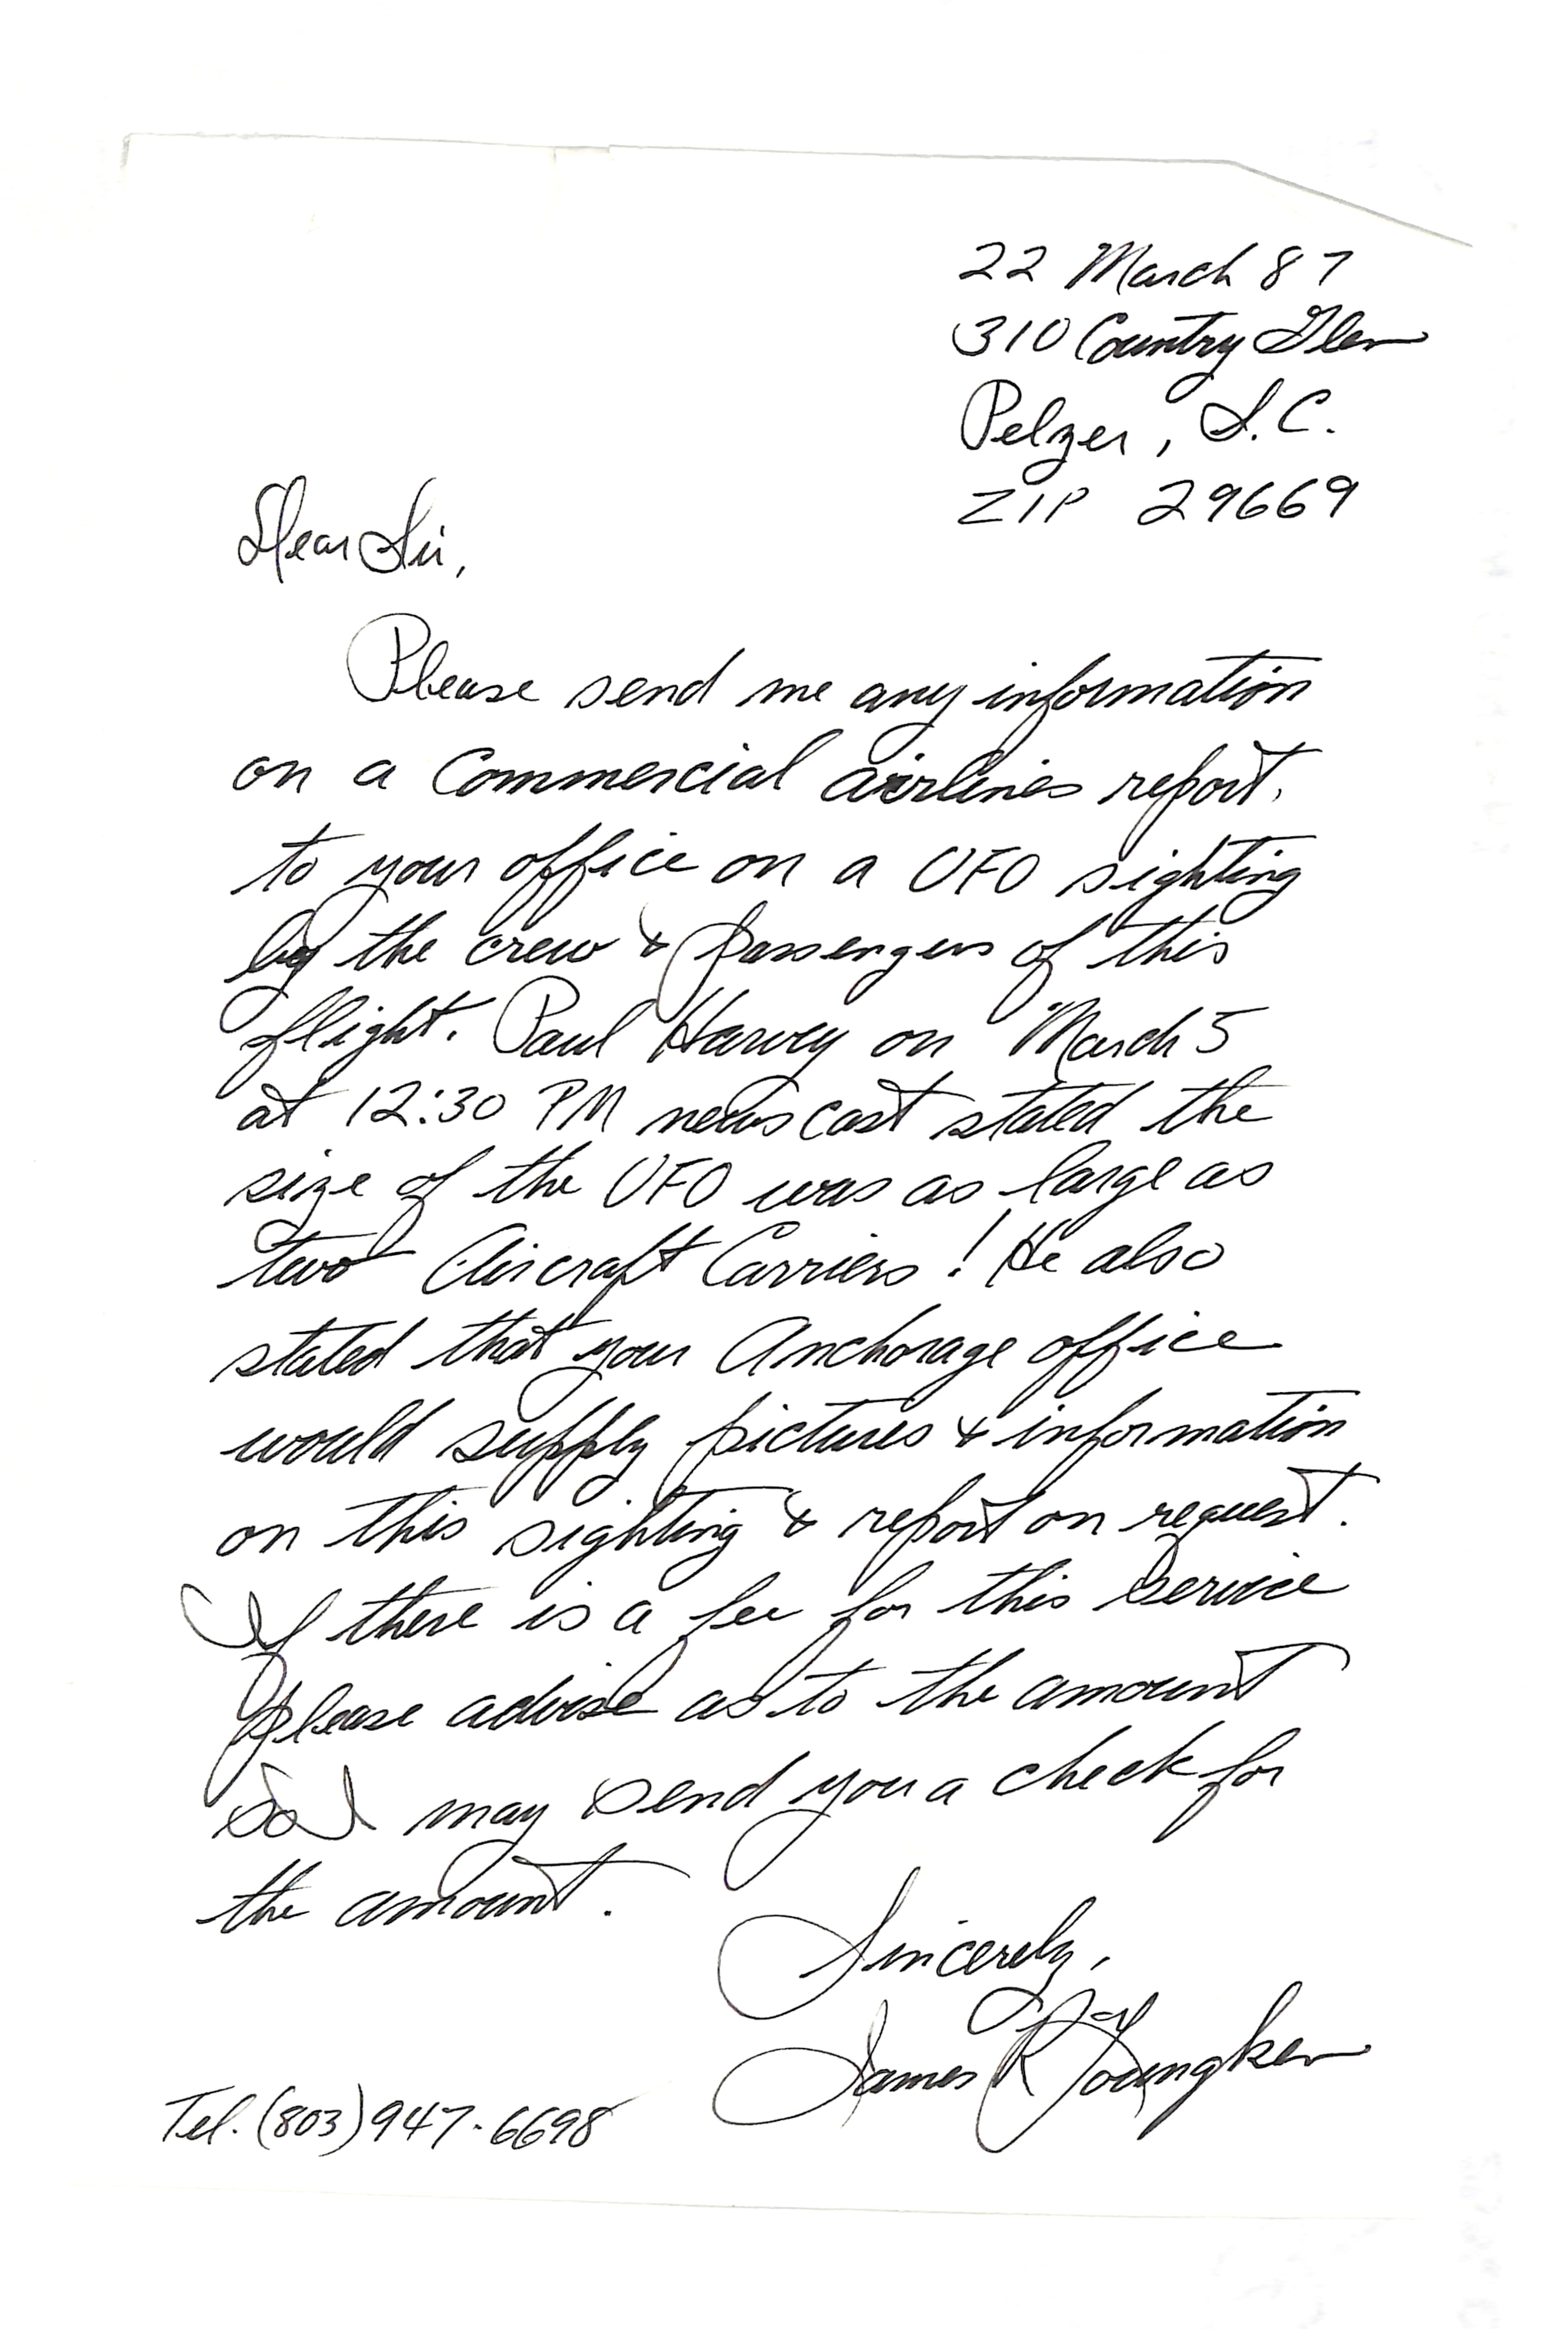 22 March 87
310 Country Glen
Pelzer, S.C.
ZIP 29669
Dear Sir,
Please send me any information
on a Commercial airlines report,
to your office on a UFO sighting
by the crew & passengers of this
flight. Paul Harvey on March 5
at 12:30 PM newscast stated the
size of the UFO was as large as
two Aircraft Carriers! He also
stated that your Anchorage office
would supply pictures & information
on this sighting & report on request.
If there is a fee for this service
please advise as to the amount
so I may send you a check for
the amount.
Sincerely,
James R Youngken
Tel. (803) 947-6698